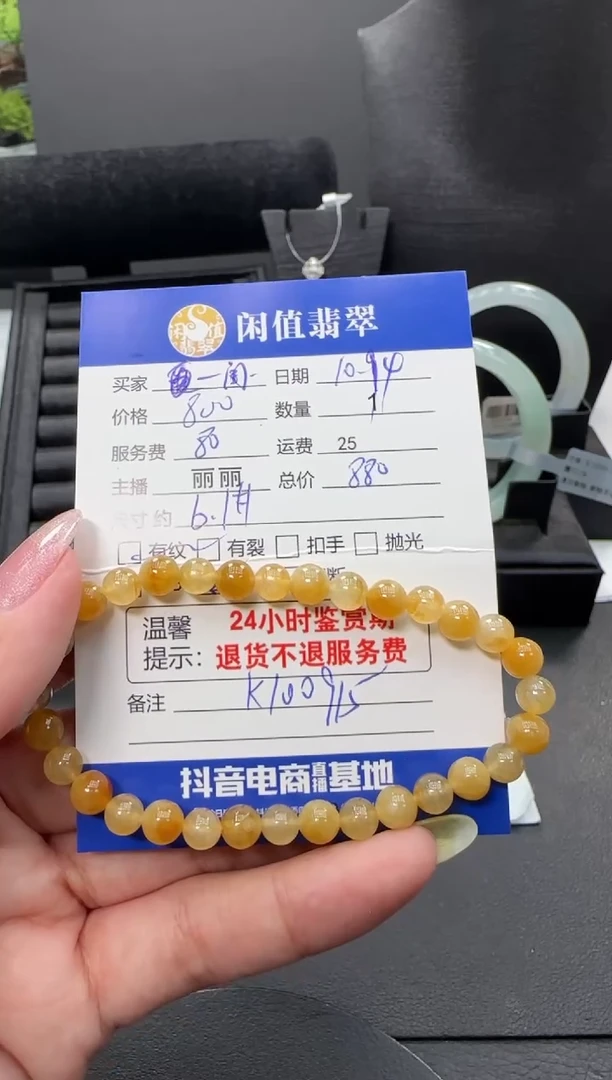 闲值翡翠
闲值
翡翠
买家 一闲 日期 10.94
价格 800 数量 1
服务费 80 运费 25
主播 丽丽 总价 880
尺寸约 6.1
有纹 有裂 扣手 抛光
温馨 24小时鉴赏期
提示: 退货不退服务费
备注 K100915
抖音电商直播基地